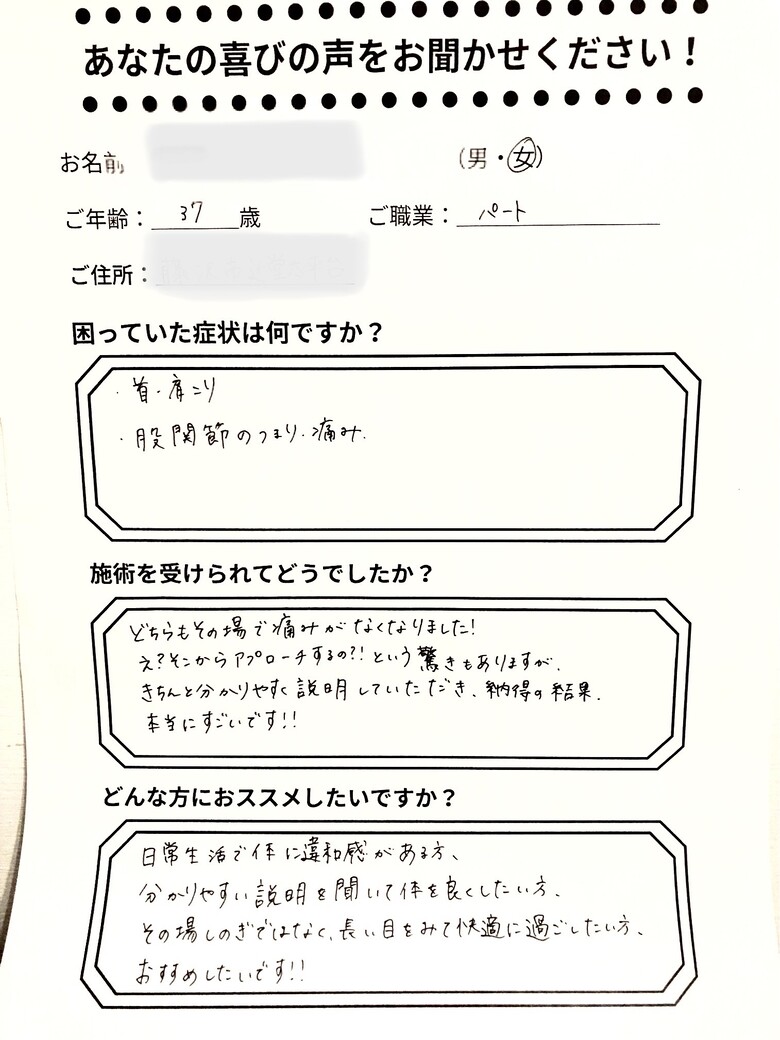 あなたの喜びの声をお聞かせください！
お名前
(男・女)
ご年齢： 37 歳
ご職業： パート
ご住所：
困っていた症状は何ですか？
・首・肩こり
・股関節のつまり・痛み.
施術を受けられてどうでしたか？
どちらもその場で痛みがなくなりました!
え?そこからアプローチするの?!という驚きもありますが、
きちんと分かりやすく説明していただき、納得の結果.
本当にすごいです!!
どんな方におススメしたいですか？
日常生活で体に違和感がある方、
分かりやすい説明を聞いて体を良くしたい方、
その場しのぎではなく、長い目をみて快適に過ごしたい方、
おすすめしたいです!!